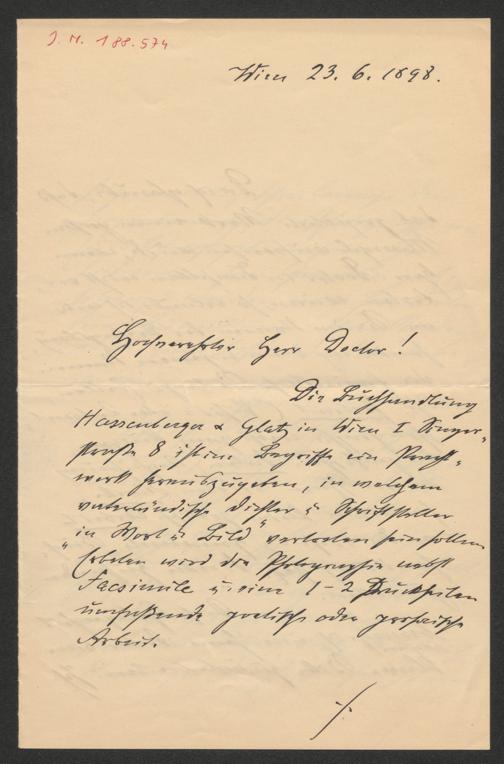 J. N. 188.574
Wien 23. 6. 1898.
Hochverehrter Herr Doctor!
Die Buchhandlung
Hassenberger & Glatz in Wien I Singer-
straße 8 ist im Begriffe ein Pracht-
werk herauszugeben, in welchem
vaterländische Dichter u Schriftsteller
„in Wort u Bild" vertreten sein sollen
Erbeten wird die Photographie nebst
Facsimile u. eine 1-2 Druckseiten
umfassende poetische oder prosaische
Arbeit.
./.